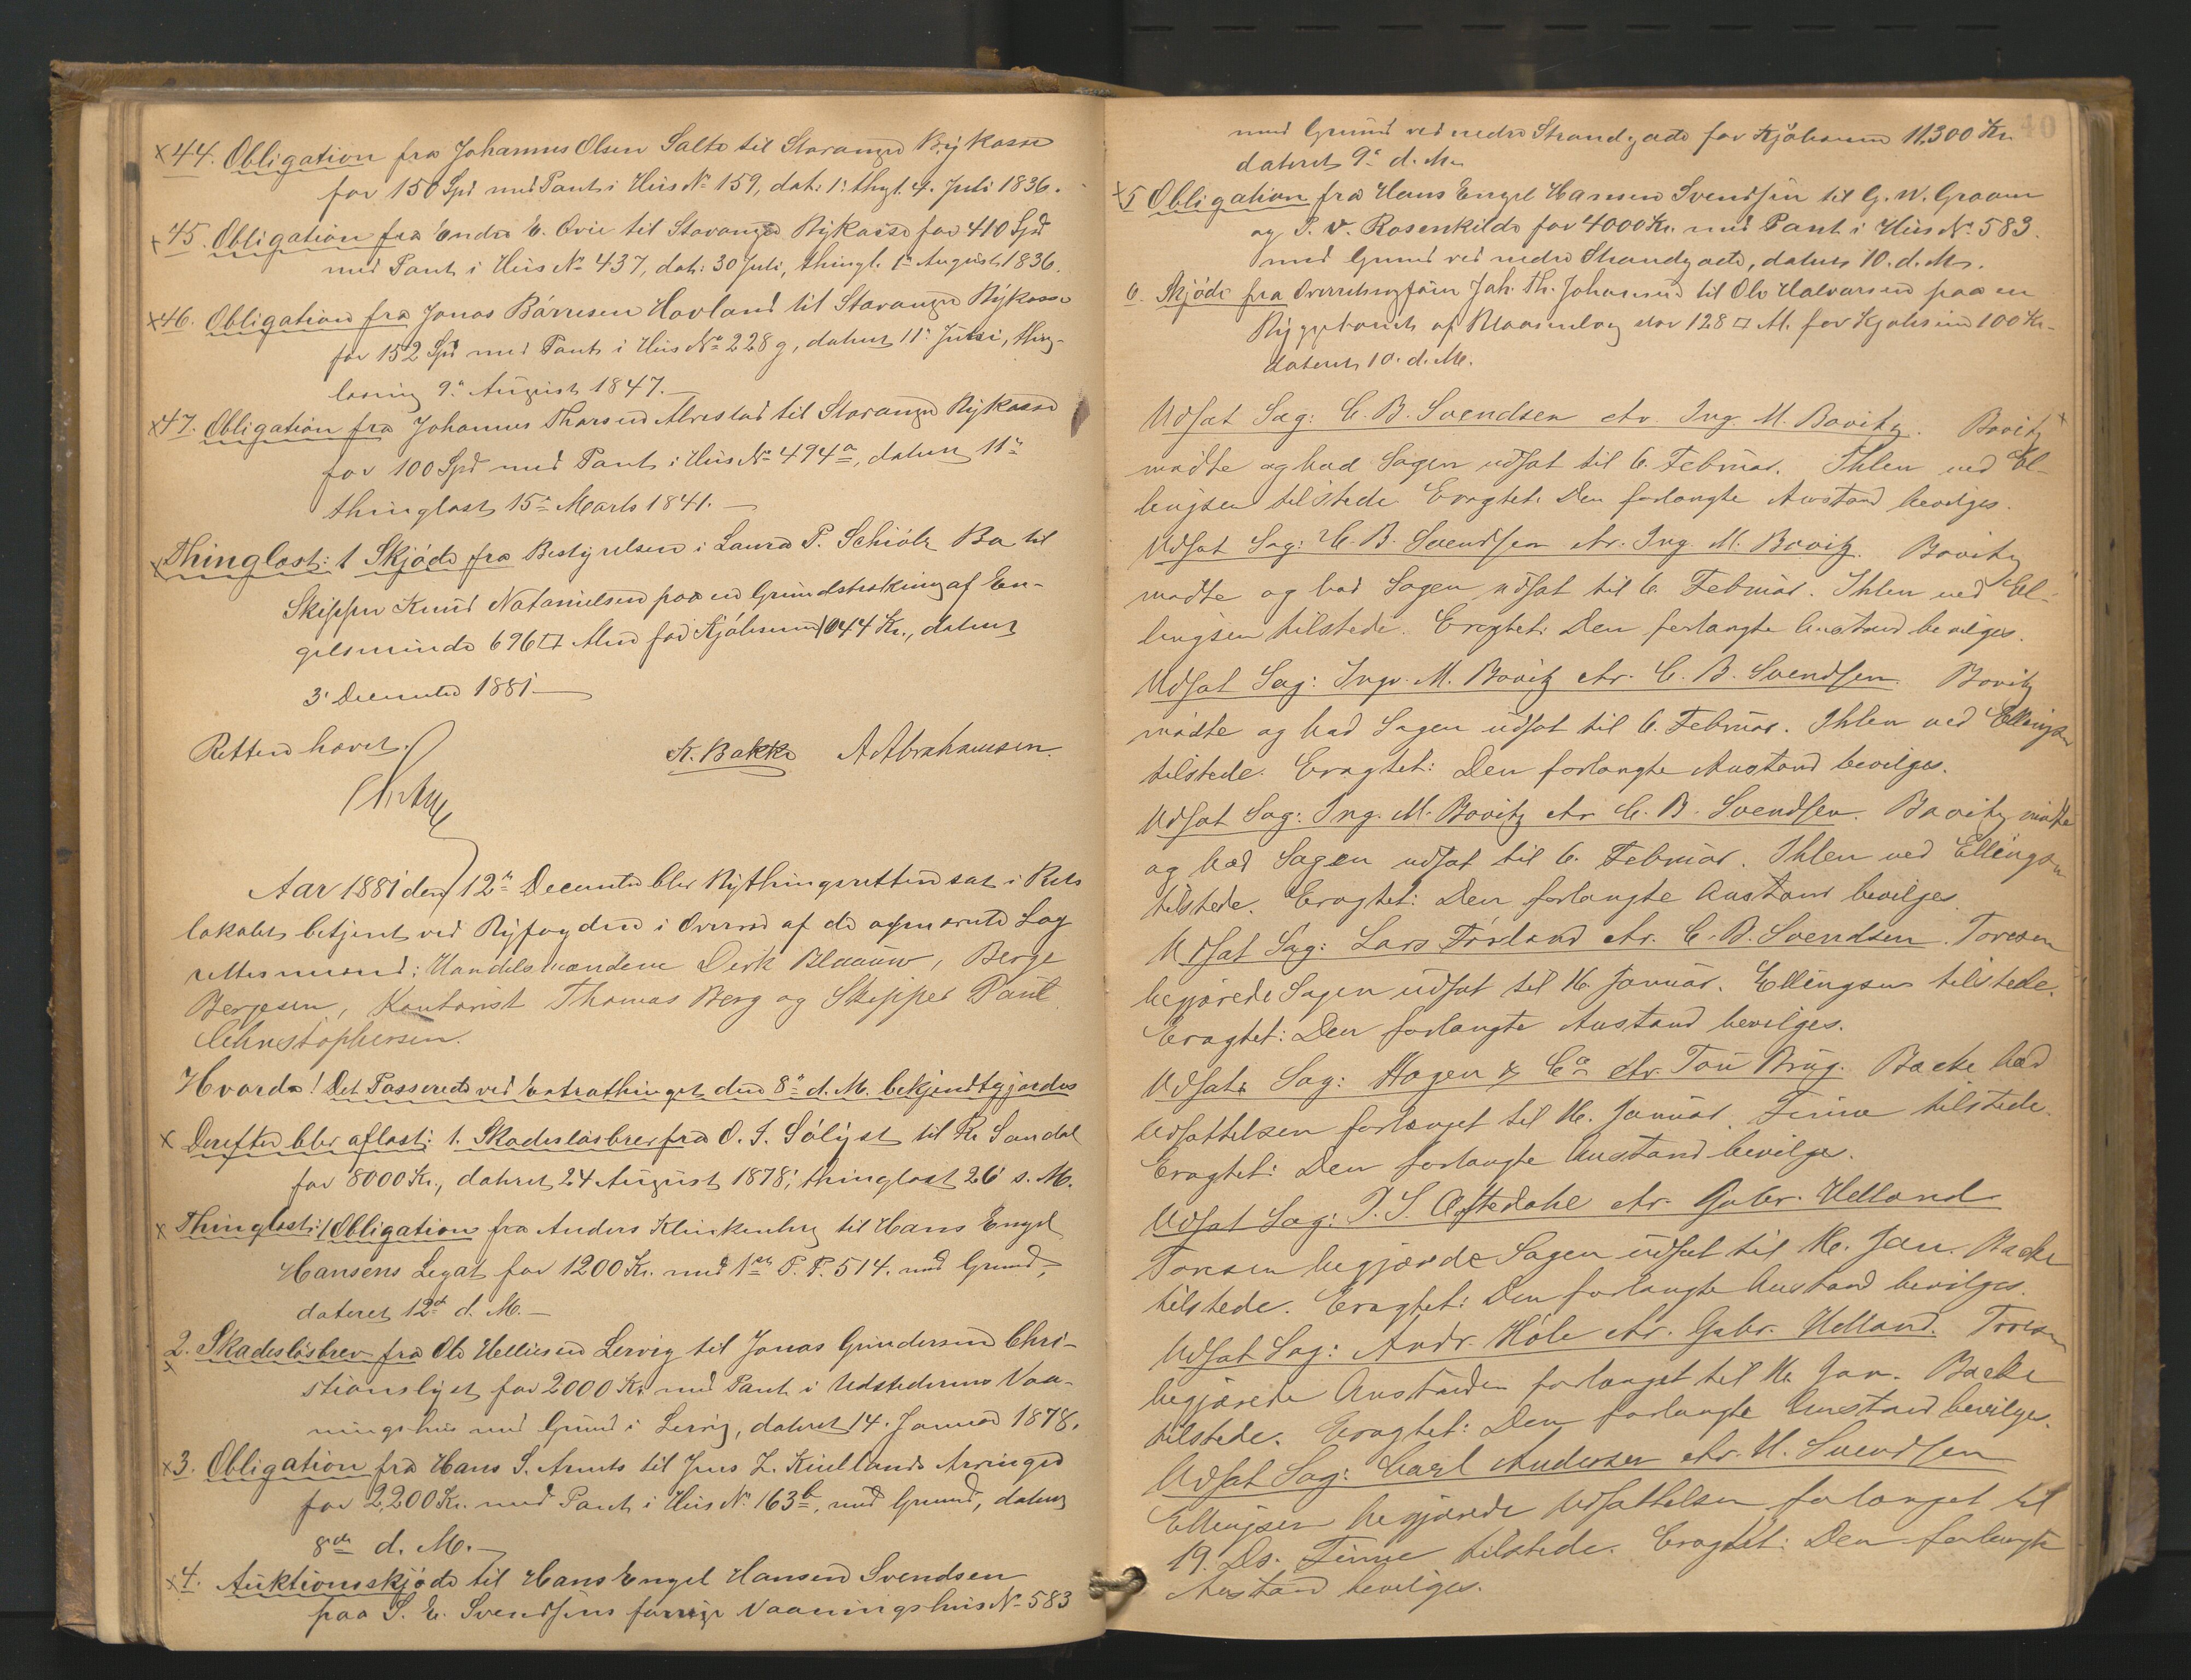 x44. Obligation fra Johannes Olsen Salte til Stavanger Bykasse
for 150 Spd med Pant i Huus No 159, dat: 1' thgl. 4. Juli 1836.
x45. Obligation fra Endre E. Qvie til Stavanger Bykasse for 410 Spd
med Pant i Huus No 437, dat: 30 Juli, thingl. 1ste August 1836.
x46. Obligation fra Jonas Bärresen Hovland til Stavanger Bykasse
for 152 Spd med Pant i Huus No 228 g, dateret 11' Juni, thing-
læsning 9' August 1847.
x47. Obligation fra Johannes Thorsen Alvestad til Stavanger Bykasse
for 100 Spd med Pant i Huus No 494a, dateret 11'
thinglæst 15' Marts 1841.
x Thinglæst: 1 Skjöde fra Bestyrelsen i Laura P. Schiötz Bo til
Skipper Knud Natanielsen paa en Grundstrækning af En-
gelsminde 696 □ Alen for Kjöbesum 1044 Kr., dateret
3' December 1881
Retten hævet.
K. Bakke A Abrahamsen.
Aar 1881 den 12te December blev Bythingsretten sat i Rets
lokalet betjent ved Byfogden i Overvær af de opnævnte Lag
rettesmænd: Handelsmændene Dirk Blaauw, Berge
Bergesen, Kontorist Thomas Berg og Skipper Paul
Christophersen.
Hvorda! Det Passerede ved Extrathinget den 8' d. M. bekjendtgjordes
x Derefter blev aflæst: 1. Skadeslösbrev fra O. S. Sölyst til Kr Sandal
for 8000 Kr., dateret 24 August 1878, thinglæst 26' s. M.
x Thinglæst: 1 Obligation fra Anders Klinkenberg til Hans Engel
Hansens Legat for 1200 Kr. med 1ste P. P. 514. med Grund,
dateret 12te d. M.
2. Skadeslösbrev fra Ole Helliesen Lervig til Jonas Gundersen Chri-
x stianslyst for 2000 Kr med Pant i Udstederens Vaa-
ningshus med Grund i Lervig, dateret 14. Januar 1878.
x3. Obligation fra Hans S. Arnts til Jens Z. Kiellands Arvinger
for 2,200 Kr. med Pant i Huus No 163b, med Grund, dateret
8de d. M.
x4. Auktionsskjöde til Hans Engel Hansen Svendsen
paa S. E. Svendsens forrige Vaaningshuus No 583
40
med Grund ved nedre Strandgade for Kjöbesum 11,300 Kr.
dateret 9' d. M.
x5 Obligation fra Hans Engel Hansen Svendsen til G. W. Graam
og P. v. Rosenkilde for 4000 Kr. med Pant i Huus No 583.
med Grund ved nedre Strandgade, dateret 10. d. M.
6. Skjöde fra Joh. Th. Johannesen til Ole Halvorsen paa en
af stor 128 □ Al. for Kjöbesum 100 Kr.
dateret 10. d. M.
Udsat Sag: C. B. Svendsen ctr. Ing. M. Bovitz. Bovitz
mödte og bad Sagen udsat til 6. Februar. Ihlen ved El-
lingsen tilstede. Eragtet: Den forlangte Anstand bevilges.
Udsat Sag: C. B. Svendsen ctr. Ing. M. Bovitz. Bovitz
mödte og bad Sagen udsat til 6. Februar. Ihlen ved El-
lingsen tilstede. Eragtet: Den forlangte Anstand bevilges.
Udsat Sag: Ingv. M. Bovitz ctr. C. B. Svendsen. Bovitz
mödte og bad Sagen udsat til 6. Februar. Ihlen ved Ellingsen
tilstede. Eragtet: Den forlangte Anstand bevilges.
Udsat Sag: Ing. M. Bovitz ctr C. B. Svendsen. Bovitz mödte
og bad Sagen udsat til 6. Februar. Ihlen ved Ellingsen
tilstede. Eragtet: Den forlangte Anstand bevilges
Udsat Sag: Lars Förland ctr. C. B. Svendsen. Toresen
begjærede Sagen udsat til 16. Januar. Ellingsen tilstede.
Eragtet: Den forlangte Anstand bevilges.
Udsat Sag: Hagen & Co ctr. Tou Brug. Backe bad
Udsættelsen forlænget til 16. Januar. Finne tilstede.
Eragtet: Den forlangte Anstand bevilges.
Udsat Sag: P. S. Oftedahl ctr. Gabr. Helland
Toresen begjærede Sagen udsat til 16. Jan. Backe
tilstede. Eragtet: Den forlangte Anstand bevilges.
Udsat Sag: Andr. Höle ctr. Gabr. Helland. Toresen
begjærede Anstanden forlænget til 16. Jan. Backe
tilstede. Eragtet: Den forlangte Anstand bevilges.
Udsat Sag: Carl Andersen ctr. H. Svendsen
Ellingsen begjærede Udsættelsen forlænget til
19. Ds. Finne tilstede. Eragtet: Den forlangte
Anstand bevilges.